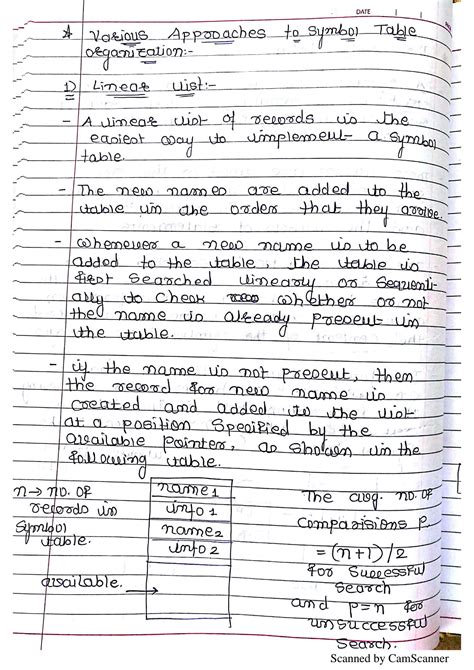 DATE
* Various Approaches to Symbol Table
organization:-
1) Linear List:-
- A linear list of records is the
easiest way to implement a symbol
table.
- The new names are added to the
table in the order that they arrive.
- Whenever a new name is to be
added to the table, the table is
first searched linearly or sequenti-
ally to check whether or not
the name is already present in
the table.
- if the name is not present, then
the record for new name is
created and added to the list
at a position specified by the
available pointer, as shown in the
following table.
n → no. of
records in
symbol
table.
available.
name1
info1
name2
info2
The avg. no. of
comparisions P
= (n+1)/2
for successful
search
and P=n for
unsuccessful
search.
Scanned by CamScanner